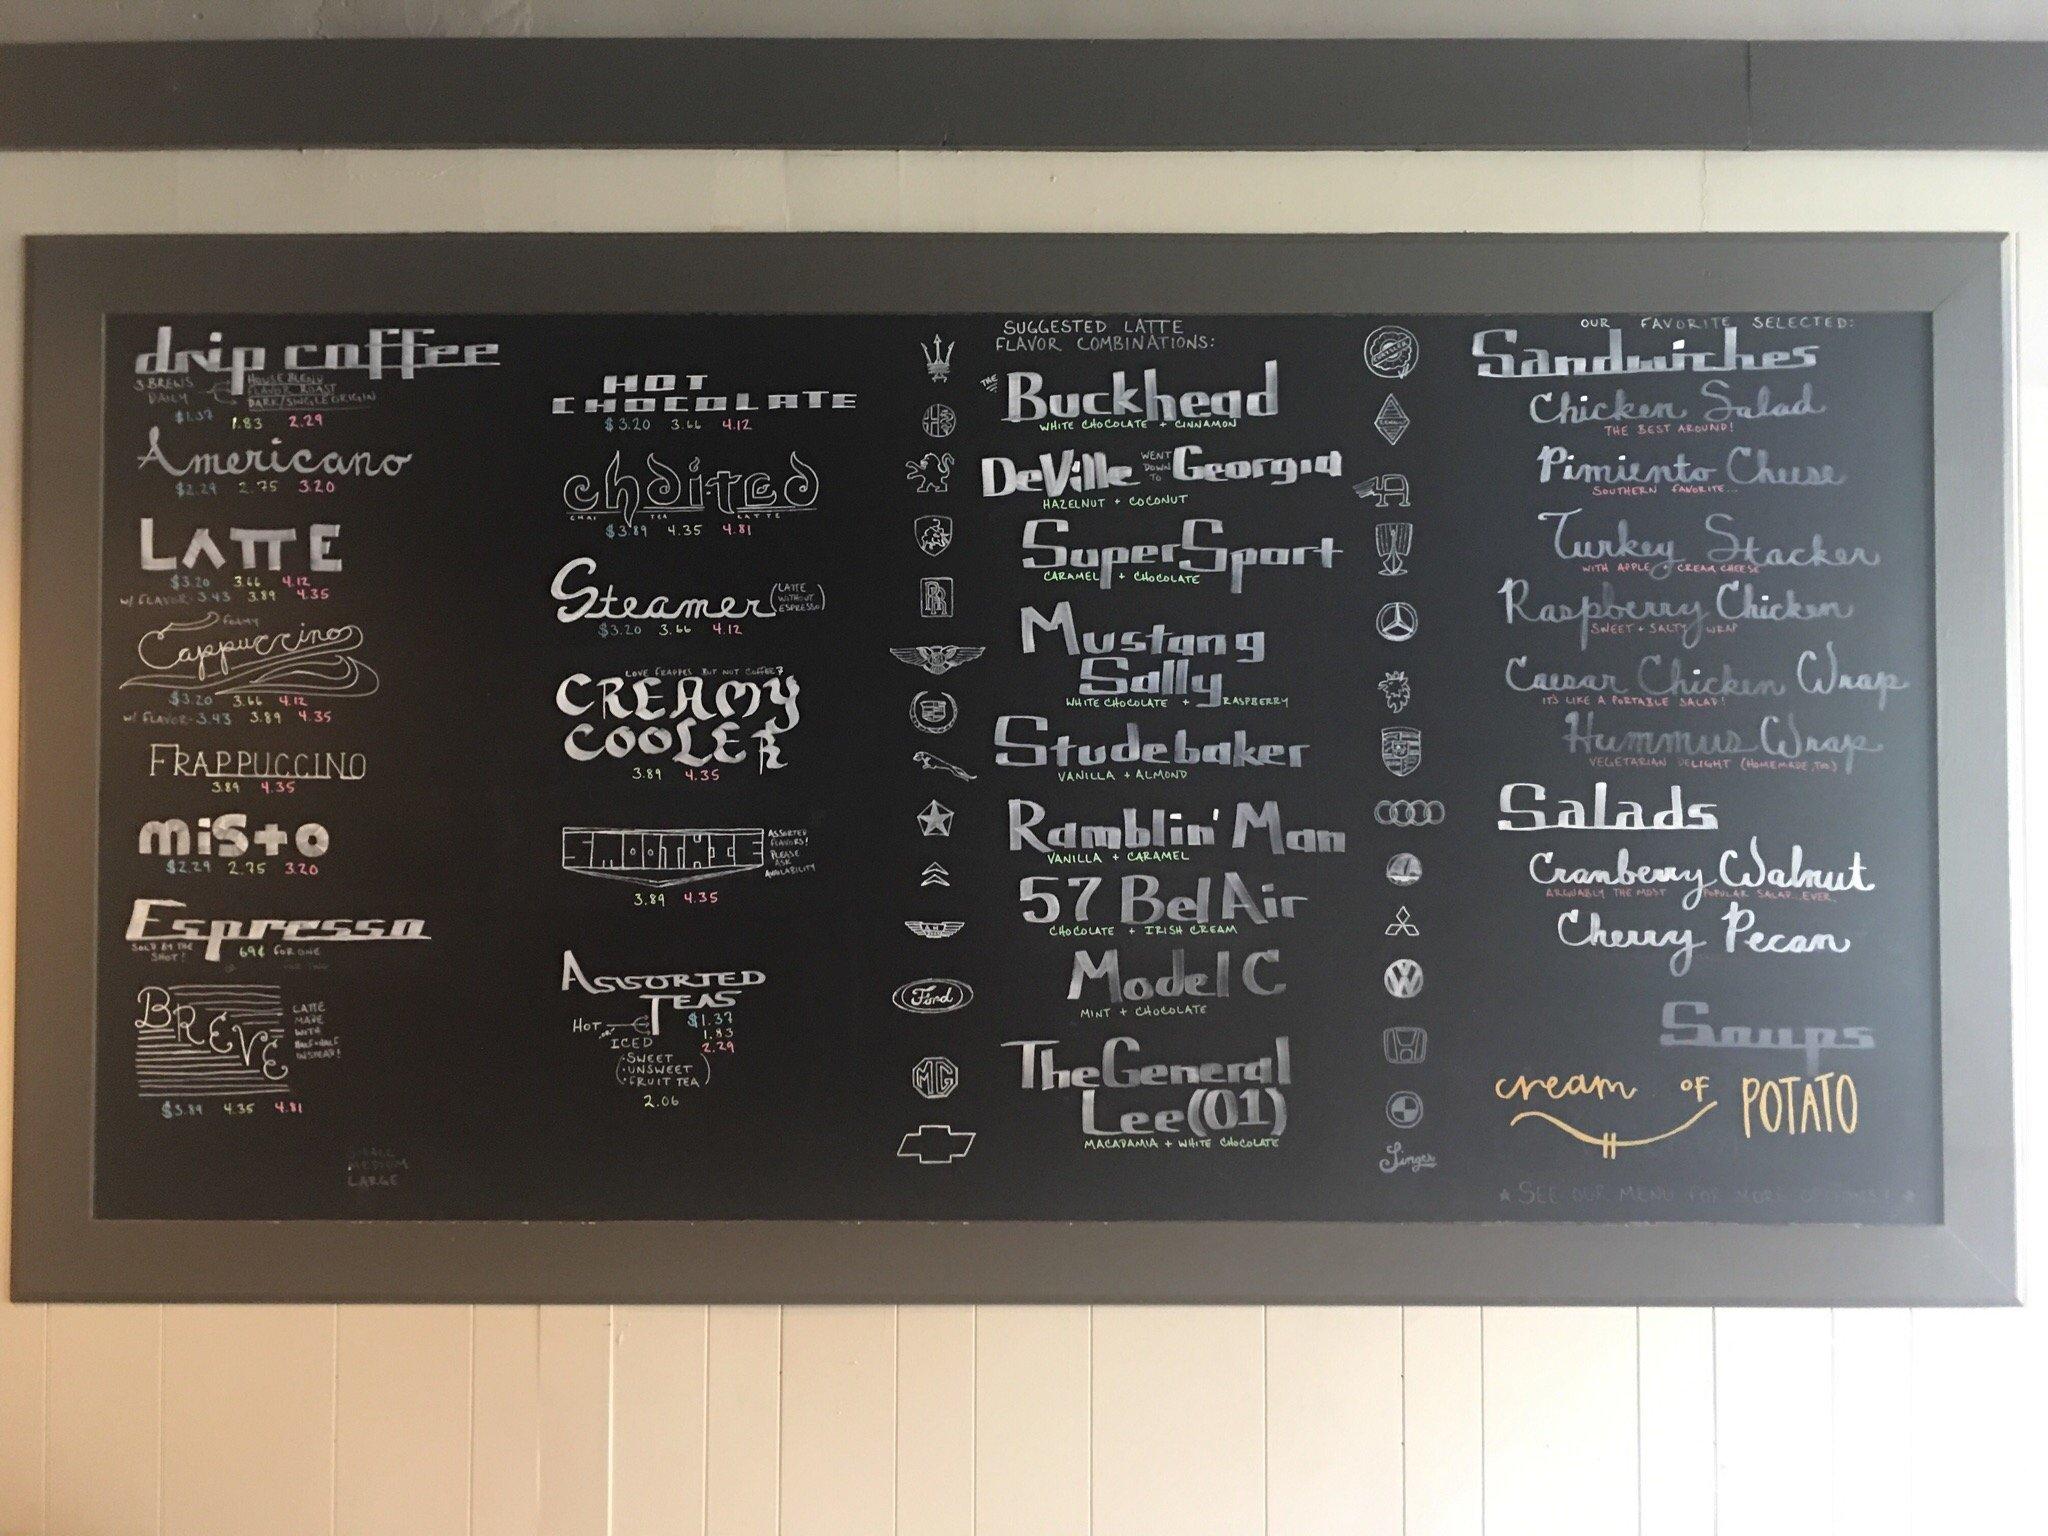 drip coffee
3 BREWS DAILY
HOUSE BLEND
FLAVOR ROAST
DARK/SINGLE ORIGIN
$1.37 1.83 2.29
Americano
$2.29 2.75 3.20
LATTE
$3.20 3.66 4.12
W/ FLAVOR - 3.43 3.89 4.35
FOAMY
Cappuccino
$3.20 3.66 4.12
W/ FLAVOR - 3.43 3.89 4.35
FRAPPUCCINO
3.89 4.35
MiSto
$2.29 2.75 3.20
Espresso
SOLD BY THE SHOT!
69¢ FOR ONE
FOR TWO
BREVE
LATTE
MADE
WITH
HALF+HALF
INSTEAD!
$3.89 4.35 4.81
SMALL
MEDIUM
LARGE
HOT
CHOCOLATE
$3.20 3.66 4.12
chai·ted
CHAI TEA LATTE
$3.89 4.35 4.81
Steamer
(LATTE
WITHOUT
ESPRESSO)
$3.20 3.66 4.12
LOVE FRAPPES BUT NOT COFFEE?
CREAMY
COOLER
3.89 4.35
ASSORTED
FLAVORS!
PLEASE
ASK
AVAILABILITY
3.89 4.35
ASSORTED
TEAS
HOT
$1.37
1.83
2.29
ICED
(·SWEET
·UNSWEET
·FRUIT TEA)
2.06
RR
Ford
MG
SUGGESTED LATTE
FLAVOR COMBINATIONS:
THE Buckhead
WHITE CHOCOLATE + CINNAMON
DeVille WENT DOWN TO Georgia
HAZELNUT + COCONUT
SuperSport
CARAMEL + CHOCOLATE
Mustang
Sally
WHITE CHOCOLATE + RASPBERRY
Studebaker
VANILLA + ALMOND
Ramblin' Man
VANILLA + CARAMEL
57 Bel Air
CHOCOLATE + IRISH CREAM
Model C
MINT + CHOCOLATE
The General
Lee (01)
MACADAMIA + WHITE CHOCOLATE
CHRYSLER
Singer
OUR FAVORITE SELECTED:
Sandwiches
Chicken Salad
THE BEST AROUND!
Pimiento Cheese
SOUTHERN FAVORITE...
Turkey Stacker
WITH APPLE + CREAM CHEESE
Raspberry Chicken
SWEET + SALTY WRAP
Caesar Chicken Wrap
IT'S LIKE A PORTABLE SALAD!
Hummus Wrap
VEGETARIAN DELIGHT (HOMEMADE, TOO)
Salads
Cranberry Walnut
ARGUABLY THE MOST POPULAR SALAD...EVER.
Cherry Pecan
Soups
cream OF POTATO
★ SEE OUR MENU FOR MORE OPTIONS! ★